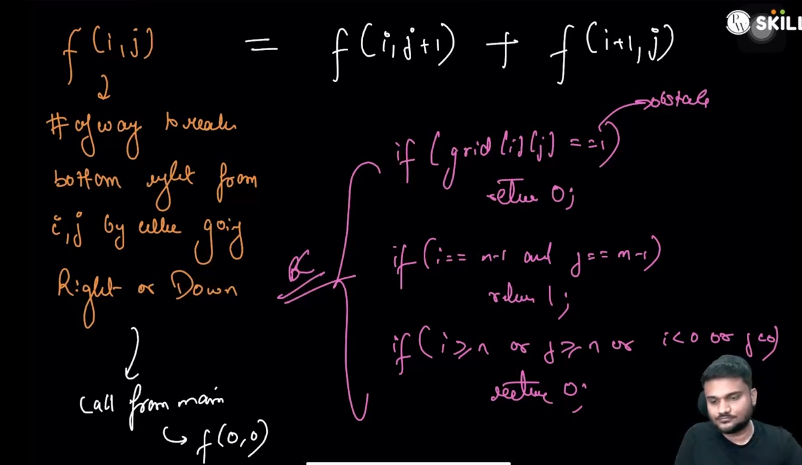 f(i,j) = f(i,j+1) + f(i+1,j)
# of way to reach
bottom right from
i,j by either going
Right or Down
call from main
f(0,0)
BC
if (grid[i][j] == 1)
obstacle
return 0;
if (i == n-1 and j == m-1)
return 1;
if (i ≥ n or j ≥ n or i<0 or j<0)
return 0;
PW SKILL